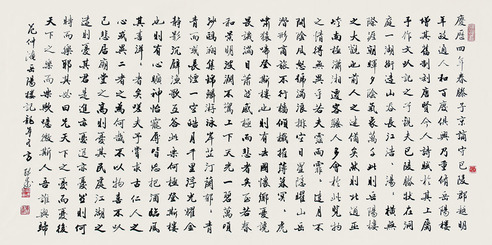 慶曆四年春滕子京謫守巴陵郡越明
年政通人和百廢俱興乃重修岳陽樓
增其舊制刻唐賢今人詩賦於其上屬
予作文以記之予觀夫巴陵勝狀在洞
庭一湖銜遠山吞長江浩、湯、橫無
際涯朝暉夕陰氣象萬千此則岳陽樓
之大觀也前人之述備矣然則北通巫
峽南極瀟湘遷客騷人多會於此覽物
之情得無異乎若夫霪雨霏、連月不
開陰風怒號濁浪排空日星隱曜山岳
潛形商旅不行檣傾楫摧薄暮冥、虎
嘯猿啼登斯樓也則有去國懷鄉憂讒
畏譏滿目蕭然感極而悲者矣至若春
和景明波瀾不驚上下天光一碧萬頃
沙鷗翔集錦鱗游泳岸芷汀蘭郁、青
青而或長煙一空皓月千里浮光耀金
靜影沉璧漁歌互答此樂何極登斯樓
也則有心曠神怡寵辱皆忘把酒臨風
其喜洋、者矣嗟夫予嘗求古仁人之
心或異二者之為何哉不以物喜不以
己悲居廟堂之高則憂其民處江湖之
遠則憂其君是進亦憂退亦憂然則何
時而樂耶其必曰先天下之憂而憂後
天下之樂而樂歟噫微斯人吾誰與歸
范仲淹岳陽樓記龍年